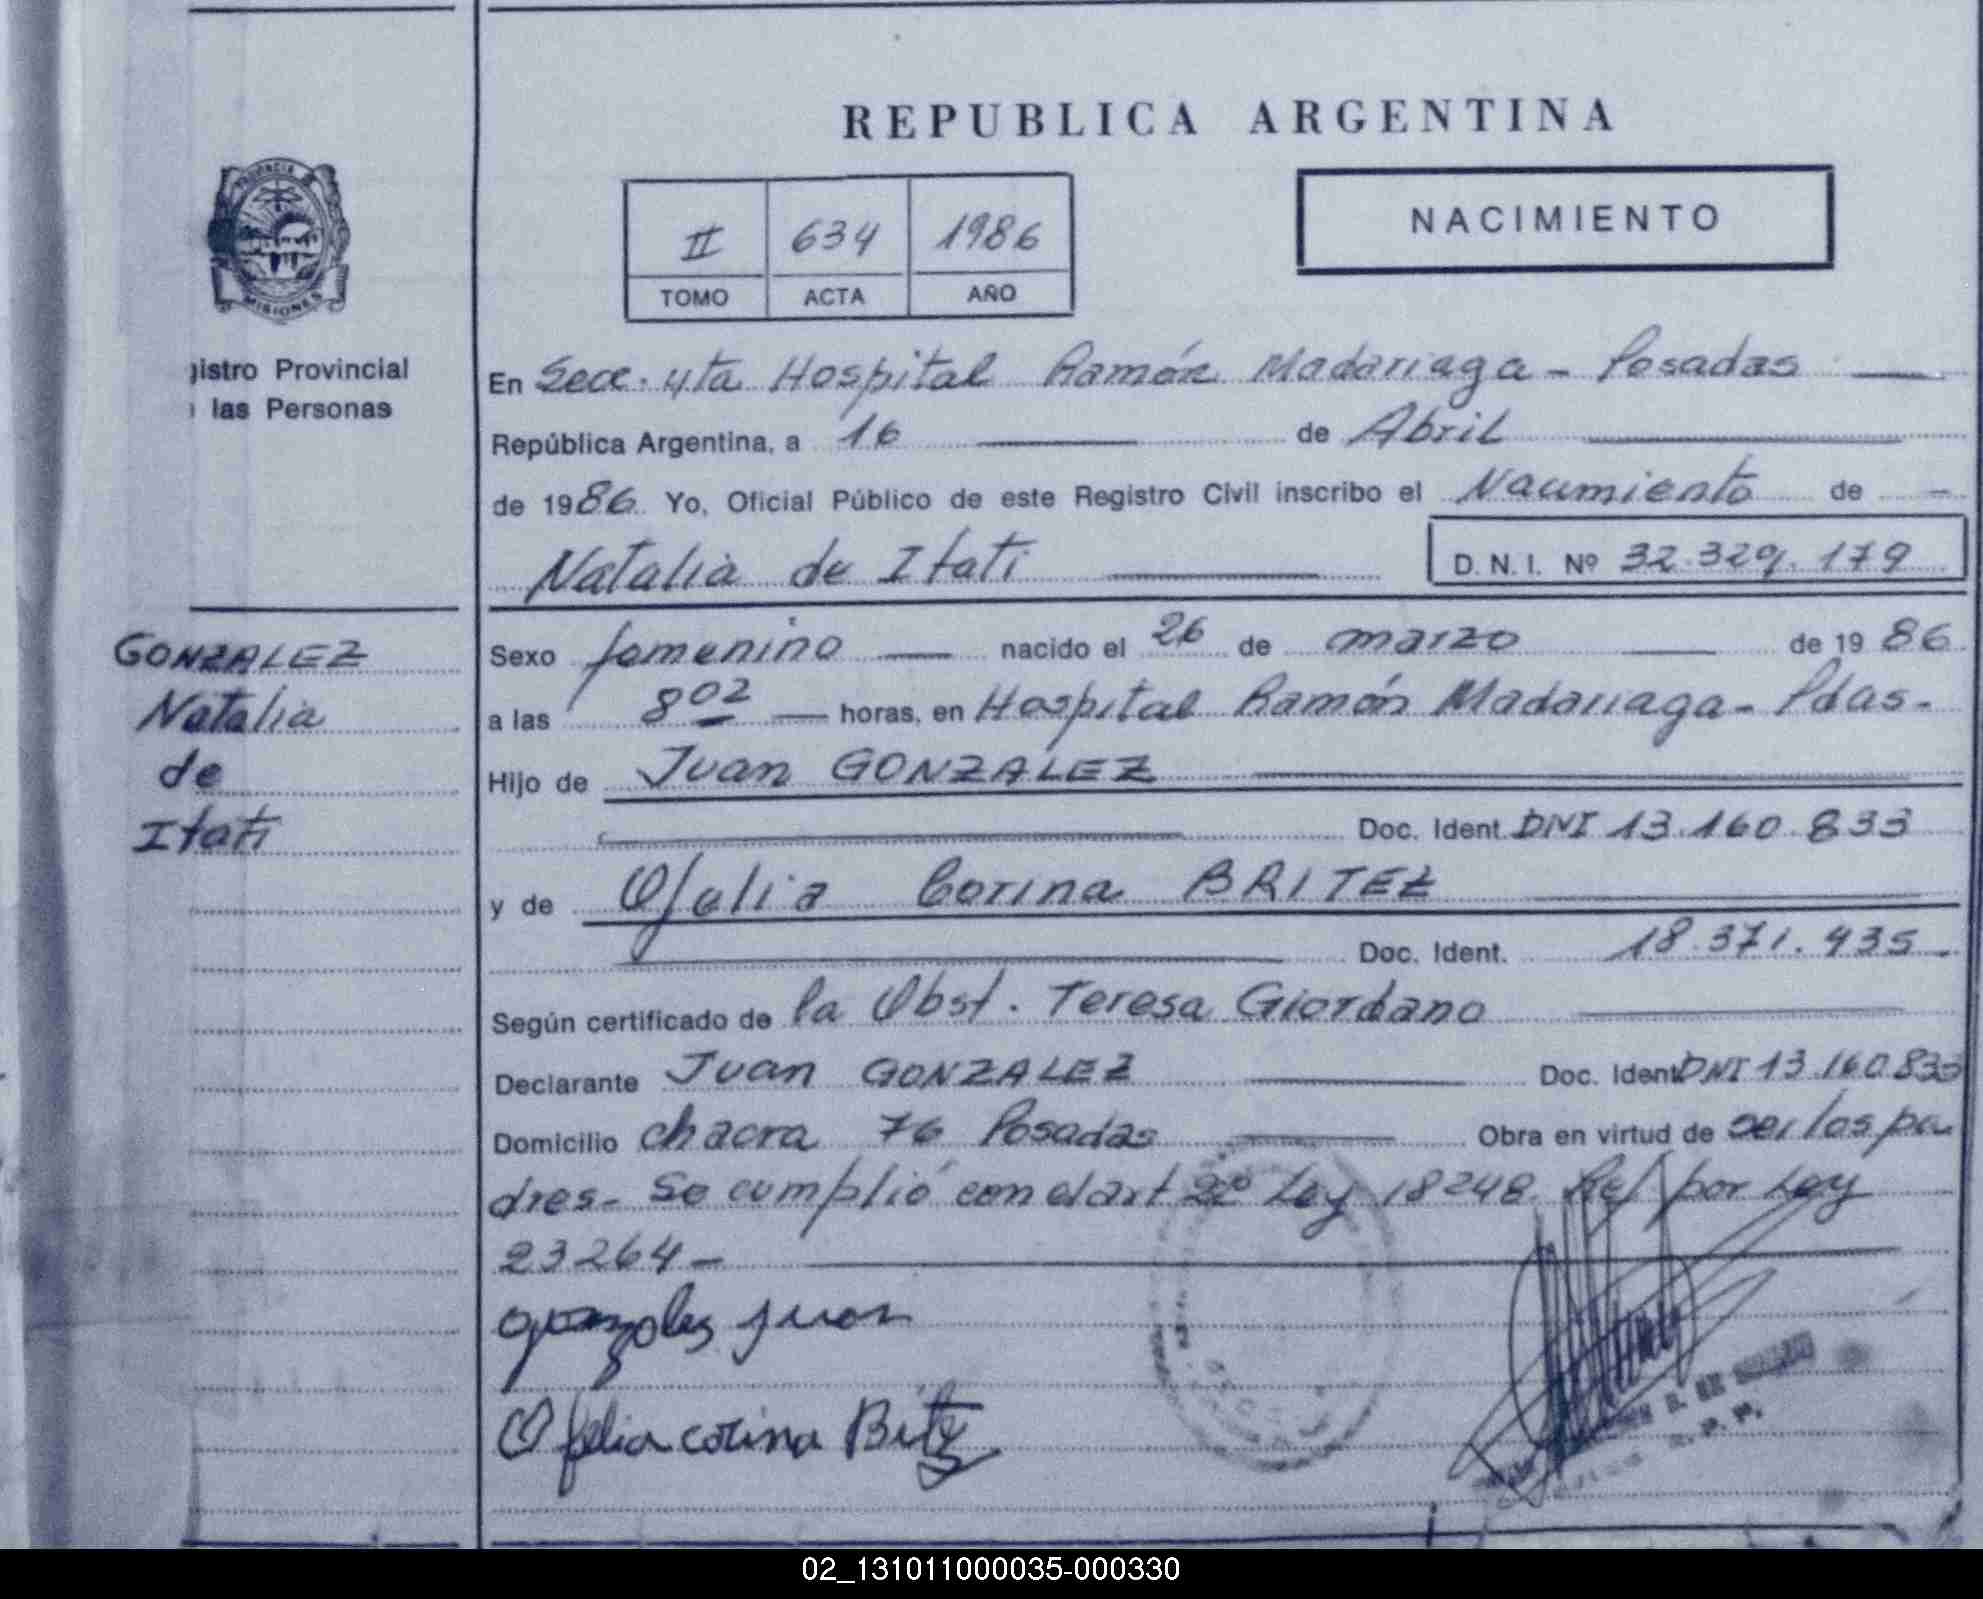 REPUBLICA ARGENTINA
NACIMIENTO
II 634 1986
TOMO ACTA AÑO
PROVINCIA DE
MISIONES
istro Provincial
las Personas
En Secc. 4ta Hospital Ramón Madariaga - Posadas
República Argentina, a 16 de Abril
de 1986 Yo, Oficial Público de este Registro Civil inscribo el Nacimiento de -
Natalia de Itati D. N. I. Nº 32.329.179
GONZALEZ
Natalia
de
Itati
Sexo femenino nacido el 26 de marzo de 1986
a las 8 02 horas, en Hospital Ramón Madariaga - Pdas -
Hijo de Juan GONZALEZ
Doc. Ident. DNI 13.160.833
y de Ofelia Corina BRITEZ
Doc. Ident. 18.371.935
Según certificado de la Obst. Teresa Giordano
Declarante Juan GONZALEZ Doc. Ident. DNI 13.160.833
Domicilio chacra 76 Posadas Obra en virtud de ser los pa
dres - Se cumplió con el art 2º Ley 18248. Ref por Ley
23264 -
gonzalez juan
Ofelia corina Britez
02_131011000035-000330